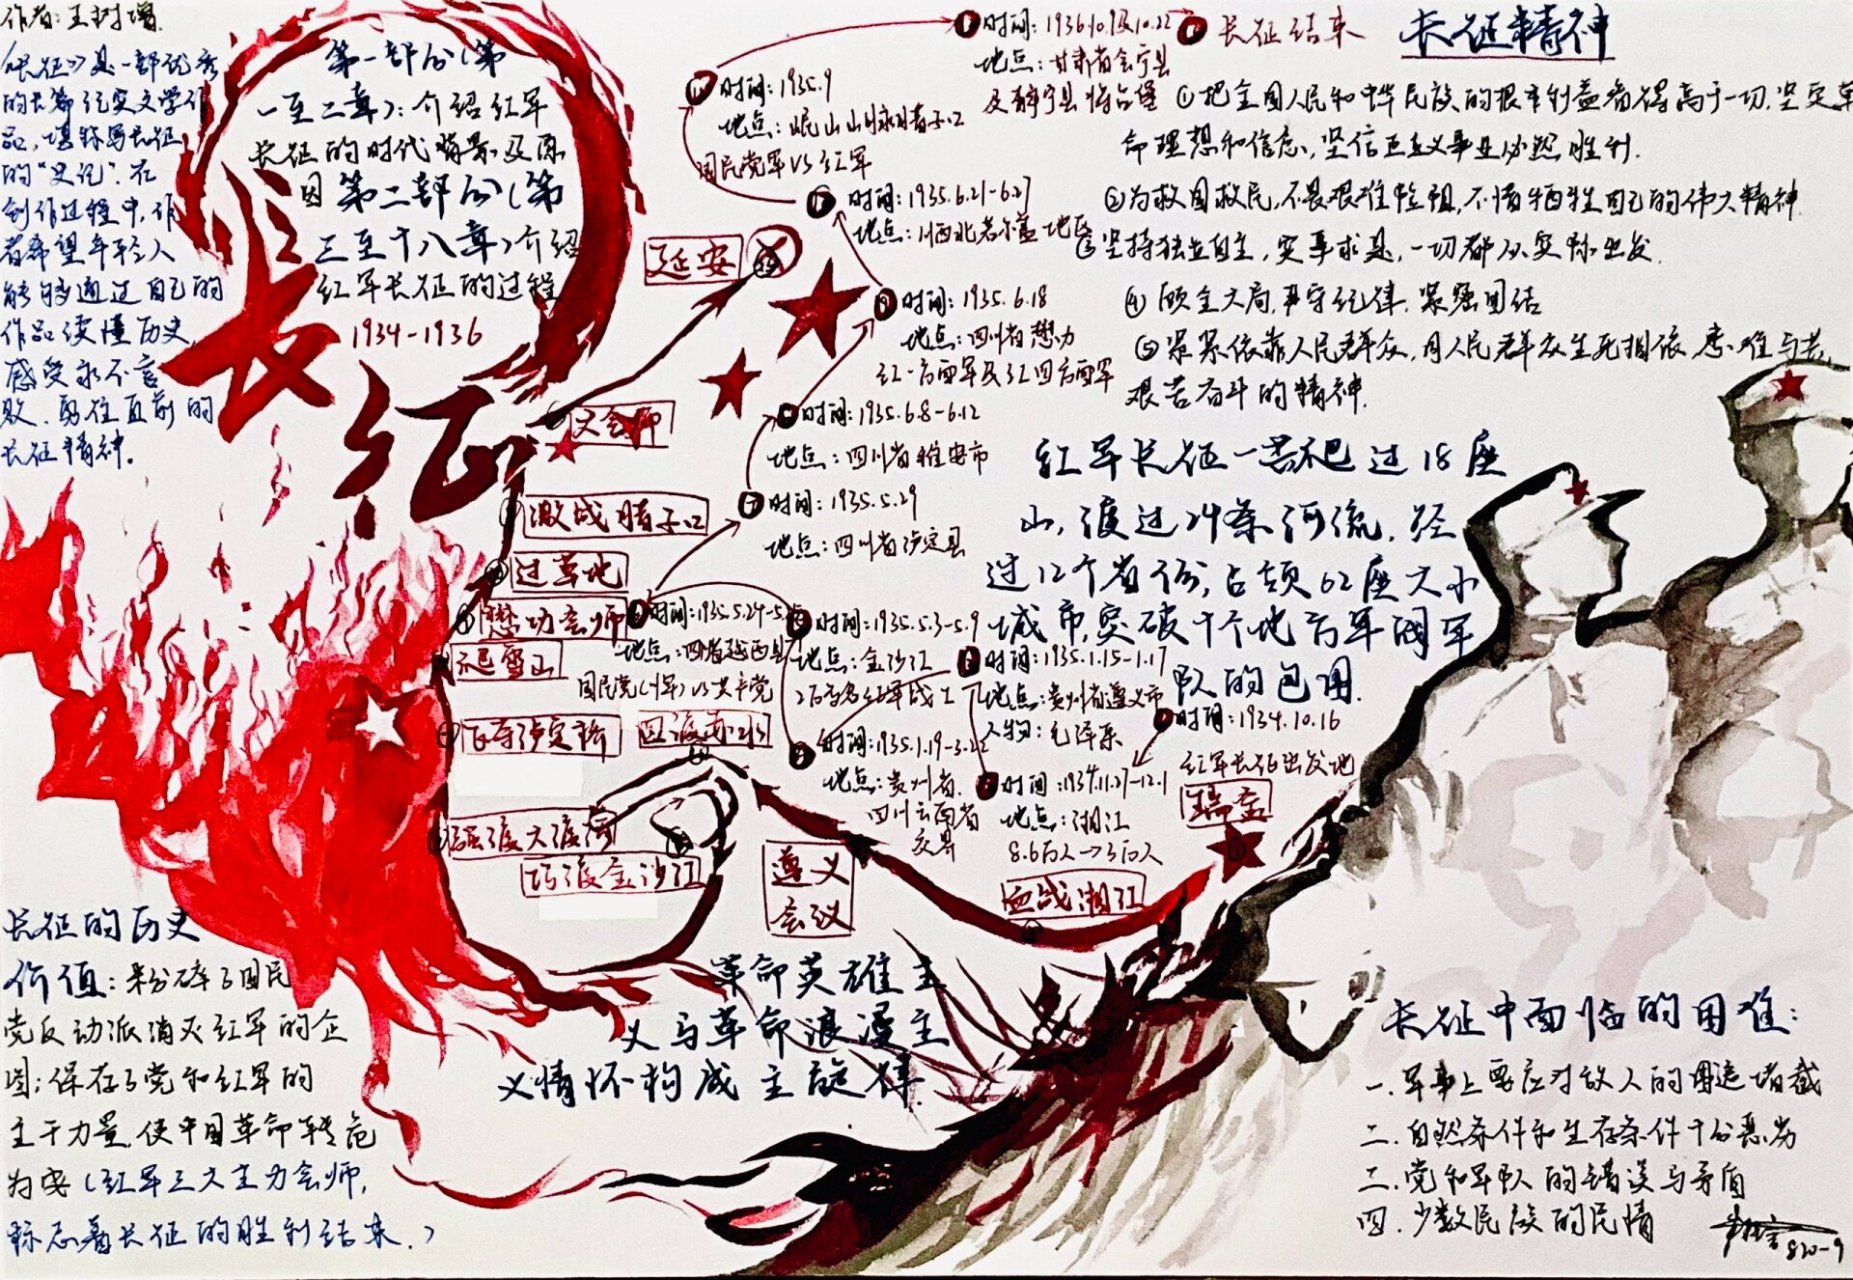 作者:王树增.
《长征》是一部优秀
的长篇纪实文学作
品,堪称写长征
的"史记".在
创作过程中,作
者希望年轻人
能够通过自己的
作品读懂历史,
感受永不言
败.勇往直前的
长征精神。
第一部分(第
一至二章):介绍红军
长征的时代背景及原
因第二部分(第
三至十八章)介绍
红军长征的过程
1934-1936
长征
延安
大会师
激战腊子口
过草地
懋功会师
爬雪山
飞夺泸定桥
强渡大渡河
巧渡金沙江
四渡赤水
遵义
会议
血战湘江
瑞金
时间:1936.10.9及10.22
地点:甘肃省会宁县
及静宁县将台堡
长征结束
时间:1935.9
地点:岷山山脉腊子口
国民党军VS红军
时间:1935.6.21-6.27
地点:川西北若尔盖地区
时间:1935.6.18
地点:四川省懋功
红一方面军及红四方面军
时间:1935.6.8-6.12
地点:四川省雅安市
时间:1935.5.29
地点:四川省泸定县
时间:1935.5.24-5.
地点:四省越西县
国民党(川军)VS共产党
时间:1935.5.3-5.9
地点:金沙江
2万多名红军战士
时间:1935.1.19-3.22
地点:贵州省.
四川云南省
交界
时间:1935.1.15-1.17
地点:贵州省遵义市
人物:毛泽东
时间:1934.11.27-12.1
地点:湘江
8.6万人→3万人
时间:1934.10.16
红军长征出发地
长征精神
①把全国人民和中华民族的根本利益看得高于一切.坚定革
命理想和信念,坚信正义事业必然胜利.
②为救国救民,不畏艰难险阻,不惜牺牲自己的伟大精神.
③坚持独立自主,实事求是,一切都从实际出发.
④顾全大局,严守纪律.紧强团结
⑤紧紧依靠人民群众,同人民群众生死相依.患难与共,
艰苦奋斗的精神.
红军长征一共爬过18座
山,渡过24条河流.经
过12个省份,占领62座大小
城市,突破十个地方军阀军
队的包围.
长征的历史
价值:粉碎了国民
党反动派消灭红军的企
图;保存了党和红军的
主干力量,使中国革命转危
为安(红军三大主力会师,
标志着长征的胜利结束.)
革命英雄主
义与革命浪漫主
义情怀构成主旋律.
长征中面临的困难:
一.军事上要应对敌人的围追堵截
二.自然条件和生存条件十分恶劣
二.党和军队的错误与矛盾
四.少数民族的民情
820-9